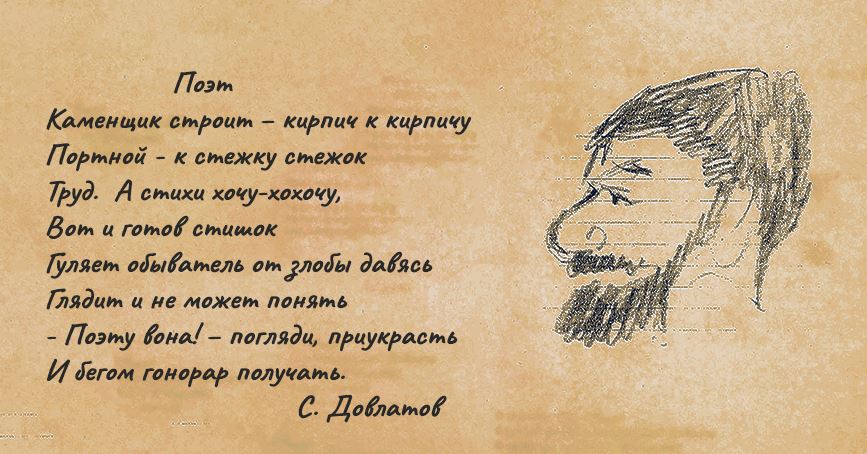 Поэт
Каменщик строит – кирпич к кирпичу
Портной - к стежку стежок
Труд. А стихи хочу-хохочу,
Вот и готов стишок
Гуляет обыватель от злобы давясь
Глядит и не может понять
- Поэту вона! – погляди, приукрасть
И бегом гонорар получать.
С. Довлатов